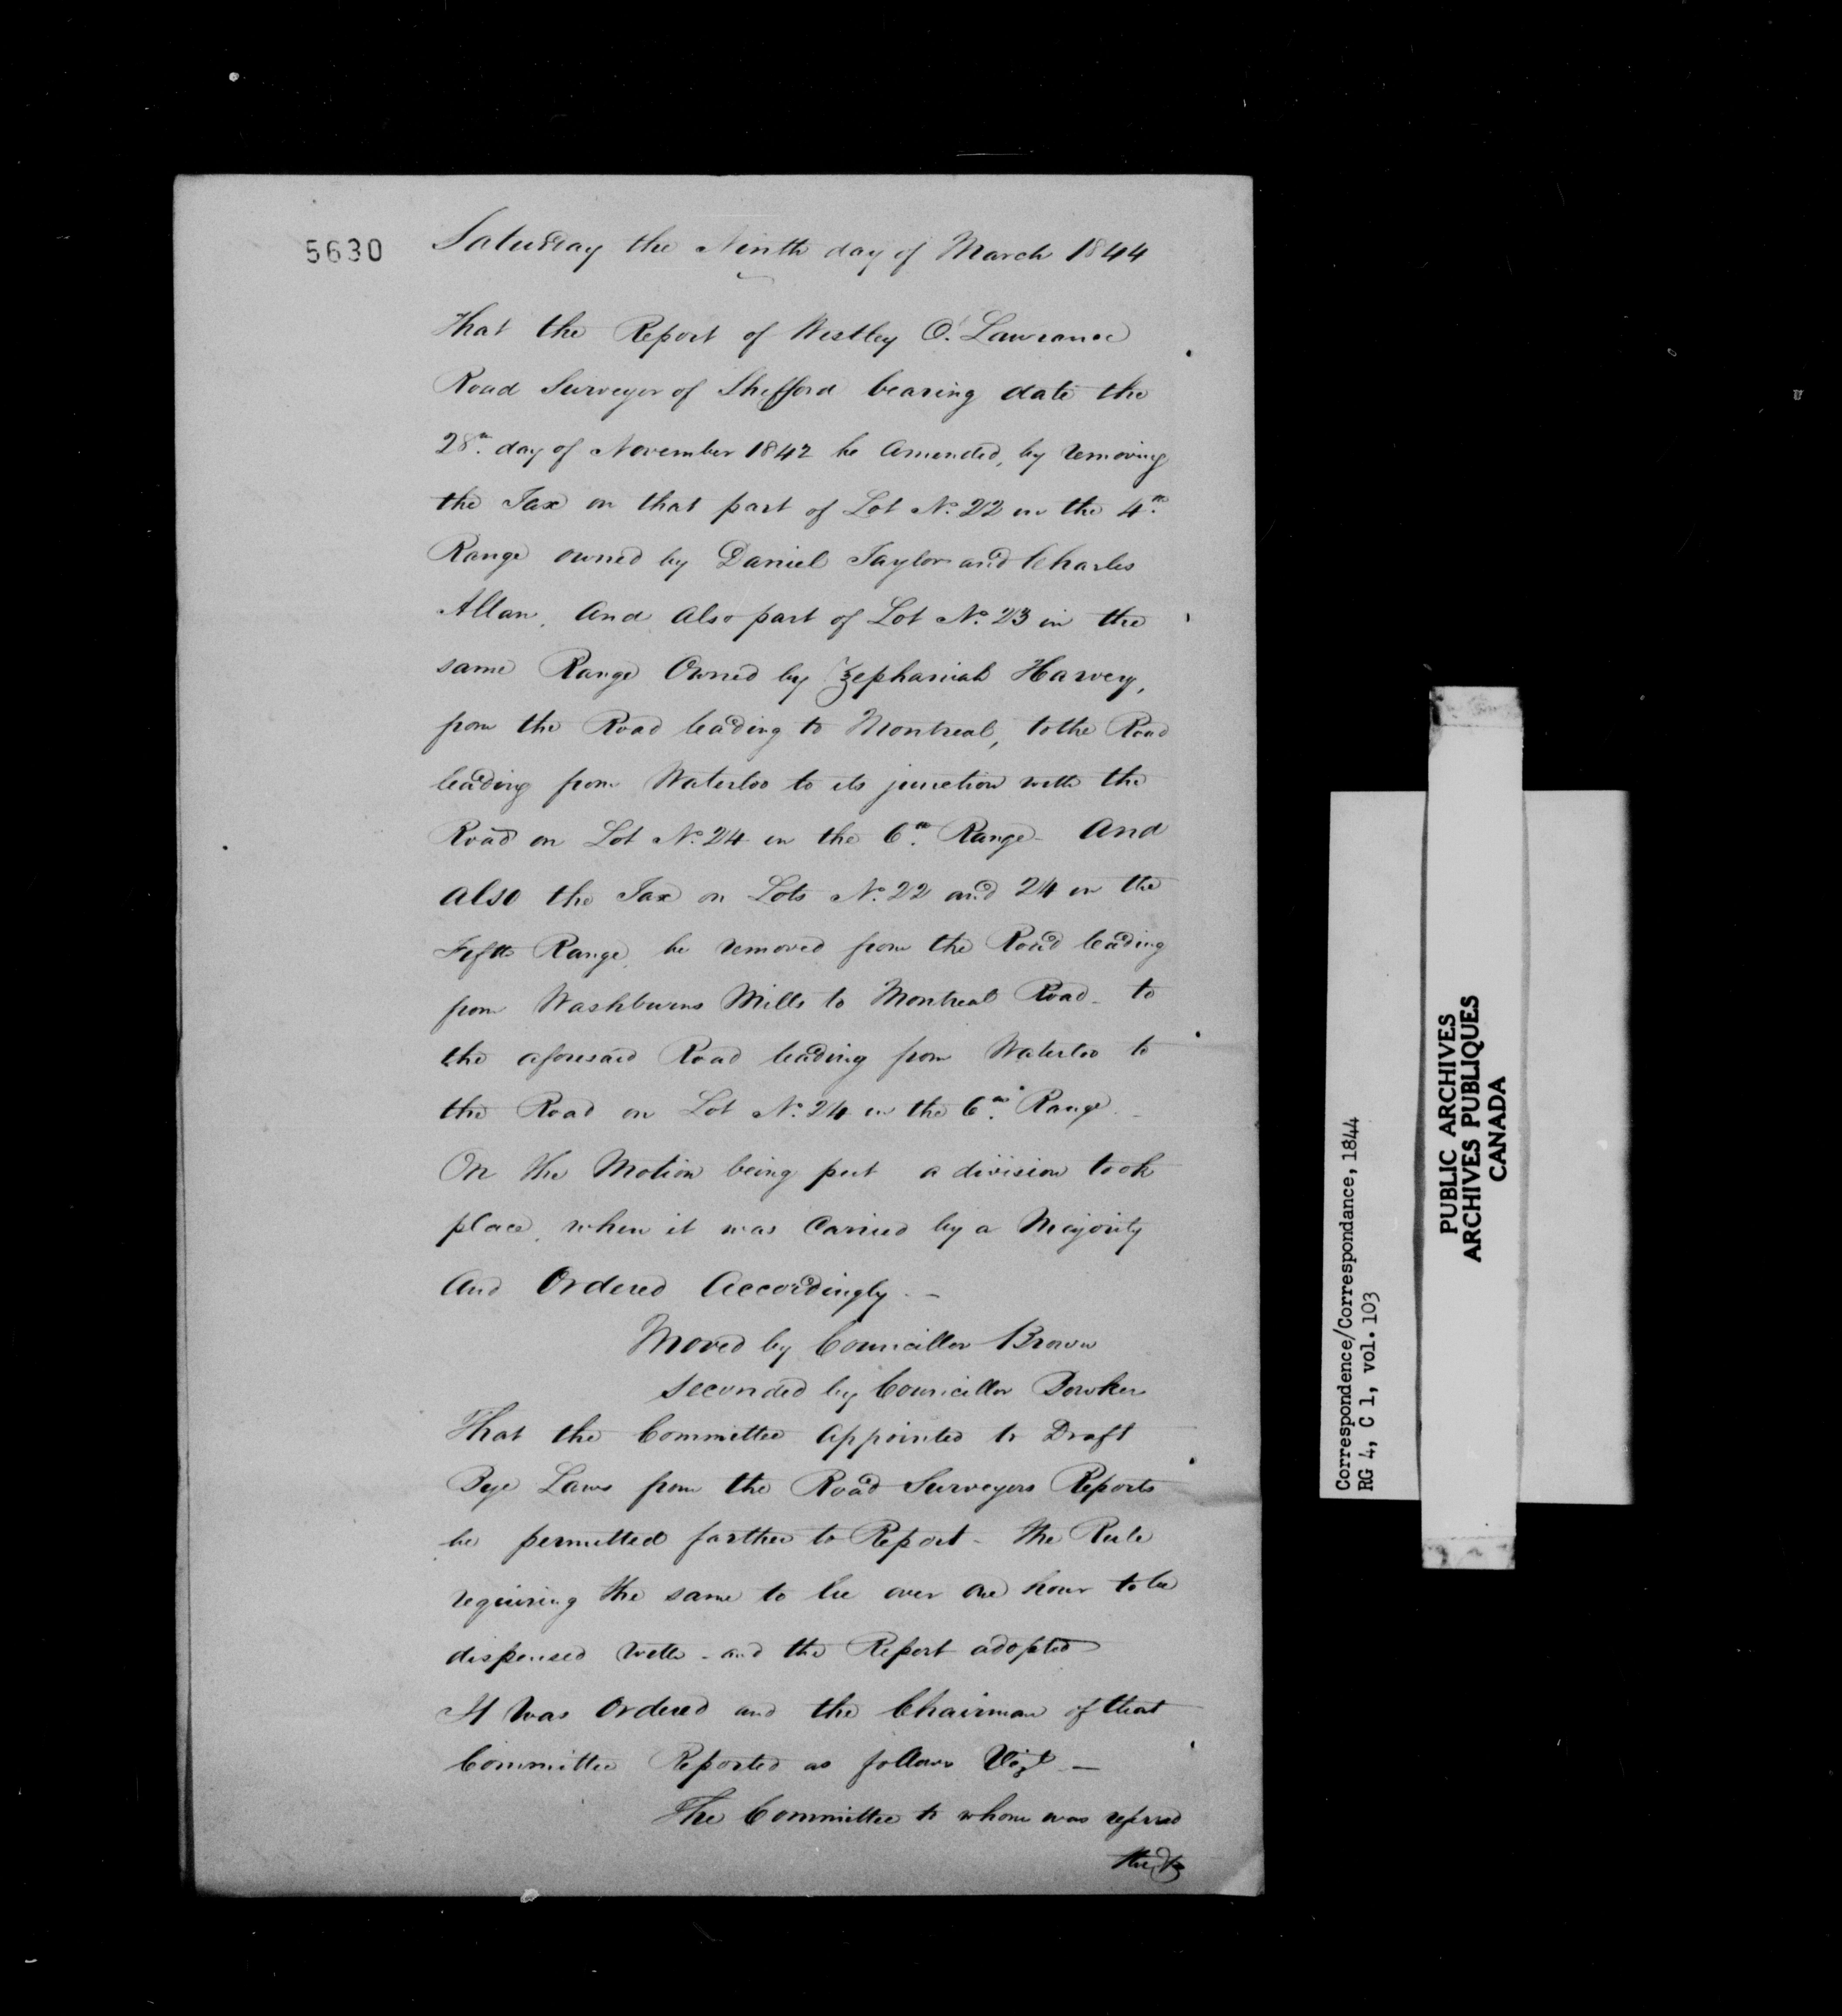 5630
Saturday the Ninth day of March 1844
That the Report of Westley O. Lawrance
Road Surveyor of Shefford bearing date the
28th. day of November 1842 be Amended, by removing
the Tax on that part of Lot No. 22 in the 4th.
Range owned by Daniel Taylor and Charles
Allan. And Also part of Lot No. 23 in the
same Range Owned by Zephaniah Harvey,
from the Road leading to Montreal, to the Road
leading from Waterloo to its junction with the
Road on Lot No. 24 in the 6th. Range - And
also the Tax on Lots No. 22 and 24 in the
Fifth Range, be removed from the Road leading
from Washburns Mills to Montreal Road - to
the aforesaid Road leading from Waterloo to
the Road on Lot No. 24 in the 6th. Range. -
On the Motion being put a division took
place, when it was Carried by a Majority
And Ordered Accordingly. -
Moved by Councillor Brown
Seconded by Councillor Bowker
That the Committee Appointed to Draft
Bye Laws from the Road Surveyors Reports
be permitted farther to Report - the Rule
requiring the same to lie over one hour to be
dispensed with - and the Report adopted
It Was Ordered and the Chairman of that
Committee Reported as follows Vizt —
The Committee to whom was referred
the
Correspondence/Correspondance, 1844
RG 4, C 1, vol. 103
PUBLIC ARCHIVES
ARCHIVES PUBLIQUES
CANADA